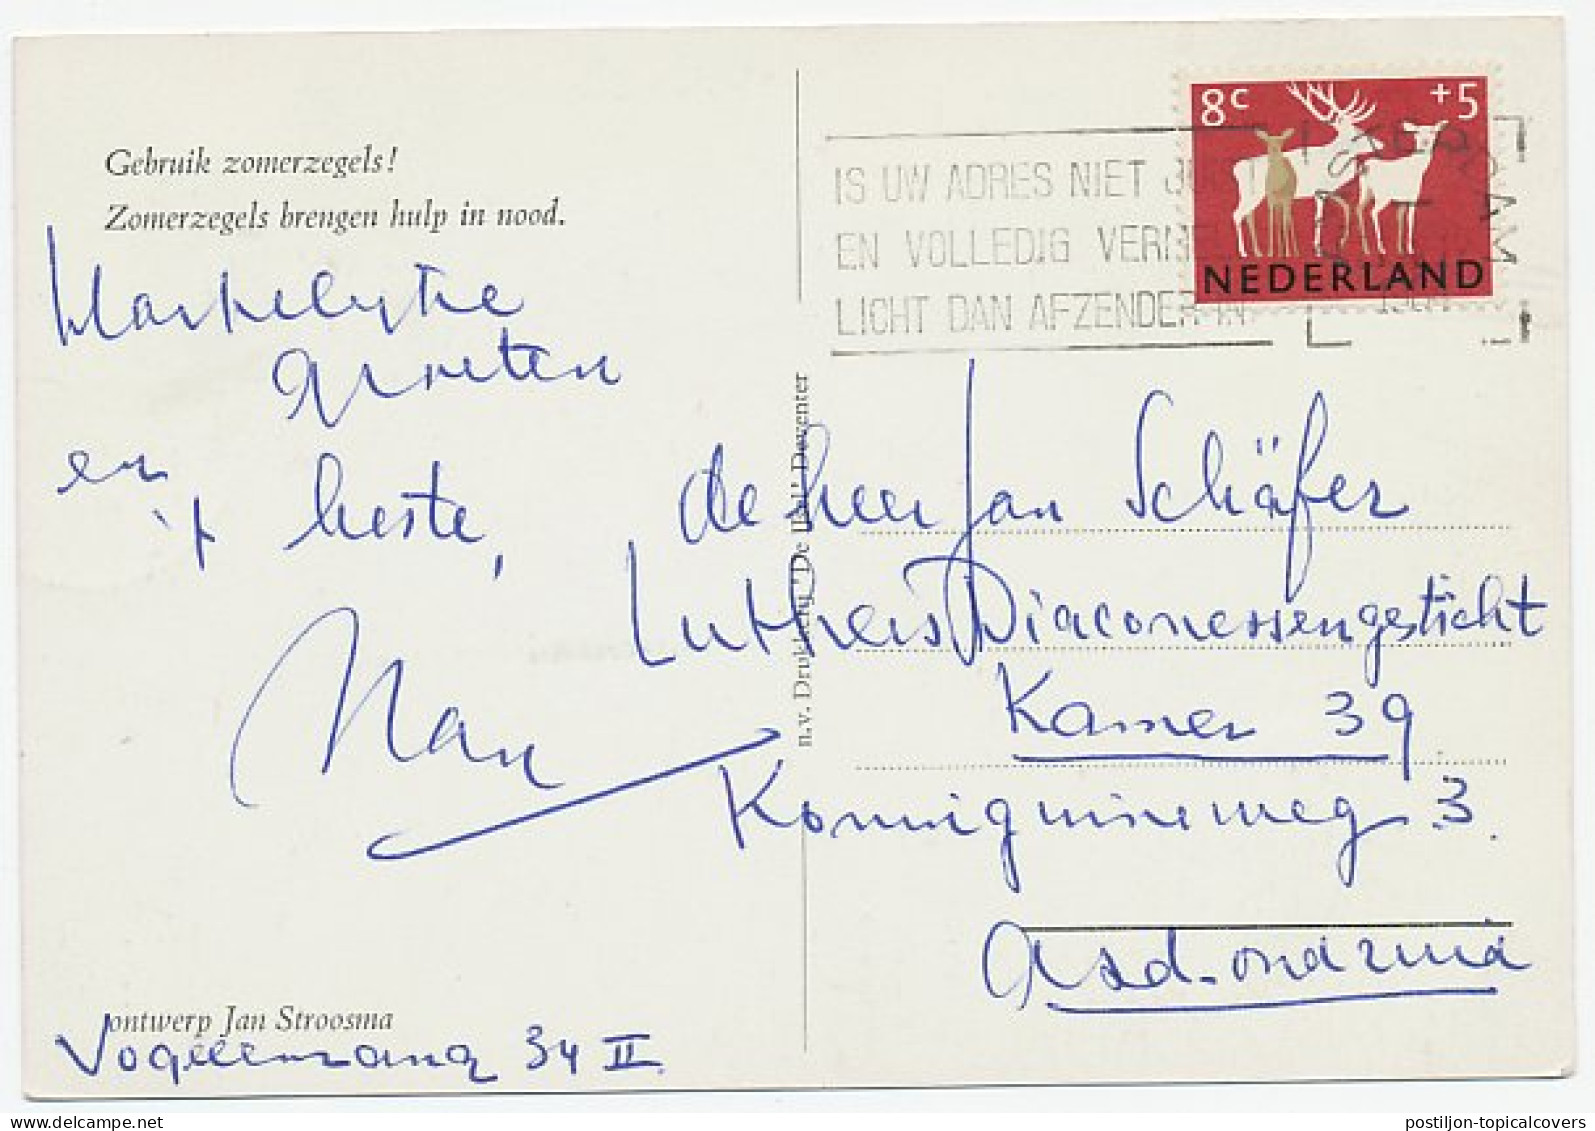 8c +5
NEDERLAND
IS UW ADRES NIET JUIST
EN VOLLEDIG VERMELD
LICHT DAN AFZENDER IN
AMSTERDAM
Gebruik zomerzegels!
Zomerzegels brengen hulp in nood.
Hartelijke
groeten
en
't beste,
Nan
de heer Jan Schäfer
Luthers Diaconessengesticht
Kamer 39
Konninginneweg 3.
Asd-Oud Zuid
n.v. Drukkerij "De IJsel" Deventer
ontwerp Jan Stroosma
Vogelenzang 34 II
postiljon-topicalcovers